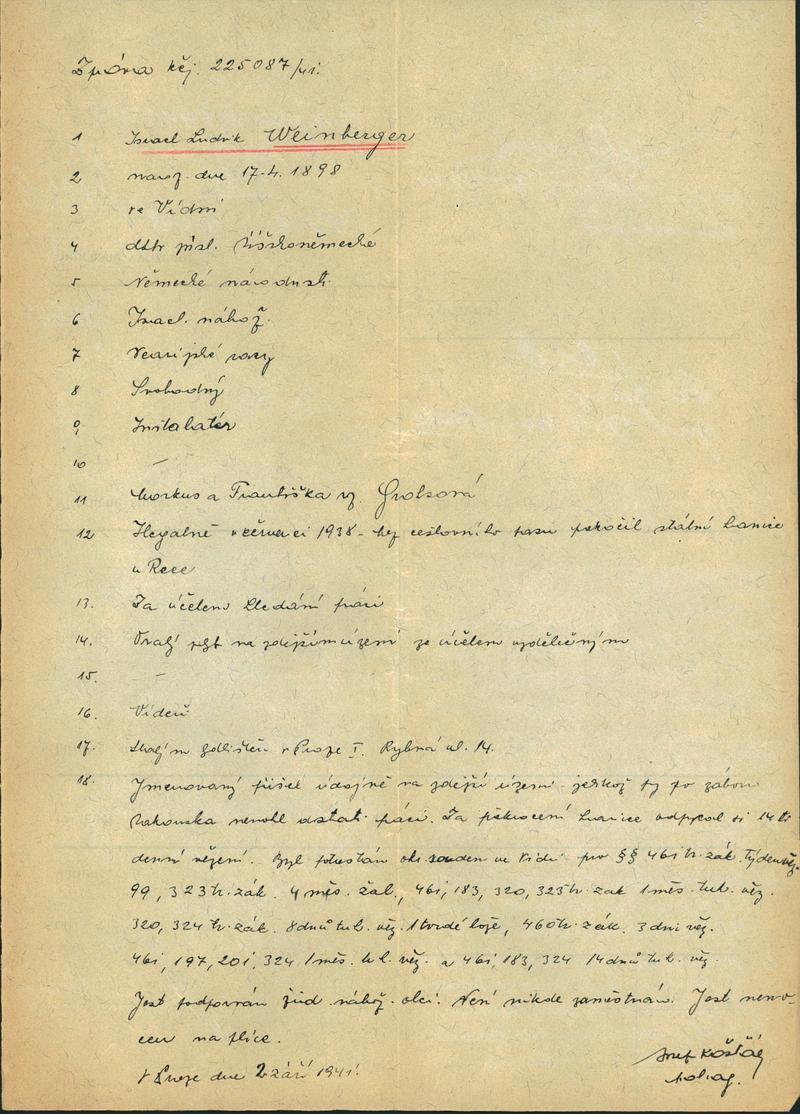 Zpráva k čj. 225087/41.
1 Israel Ludvík Weinberger
2 naroz. dne 17.4. 1898
3 ve Vídni
4 státr přísl. říšskoněmecké
5 Německé národnosti
6 Israel. nábož.
7 Nearijské rasy
8 Svobodný
9 Instalatér
10 –
11 Markus a Františka roz.
12 Ilegálně v červenci 1938 - bez cestovního pasu překročil státní hranice
u
13. Za účelem hledání práce
14. Trvalý pobyt na zdejším území za účelem výdělečným
15. –
16. Vídeň
17. Stálým bydlištěm v Praze I. Rybná ul. 14.
18. Jmenovaný přišel údajně na zdejší území jelikož by po záboru
Rakouska nemohl dostat práci. Za překročení hranice odpykal si 14ti
denní vězení. Byl potrestán okr. soudem ve Vídni pro §§ 461 tr. zák. týden věz.
99, 323 tr. zák. 4 měs. žal., 461, 183, 320, 323 tr. zak 1 měs. tuh. věz.
320, 324 tr. zák. 8 dnů tuh. věz. 1 tvrdé lože, 460 tr. zák. 3 dni věz.
461, 197, 201, 324 1 měs. tuh. věz. a 461, 183, 324 14 dnů tuh. věz.
Jest podporován žid. nábož. obcí. Není nikde zaměstnán. Jest nemo-
cen na plíce.
V Praze dne 2 září 1941.
Josef Košťál